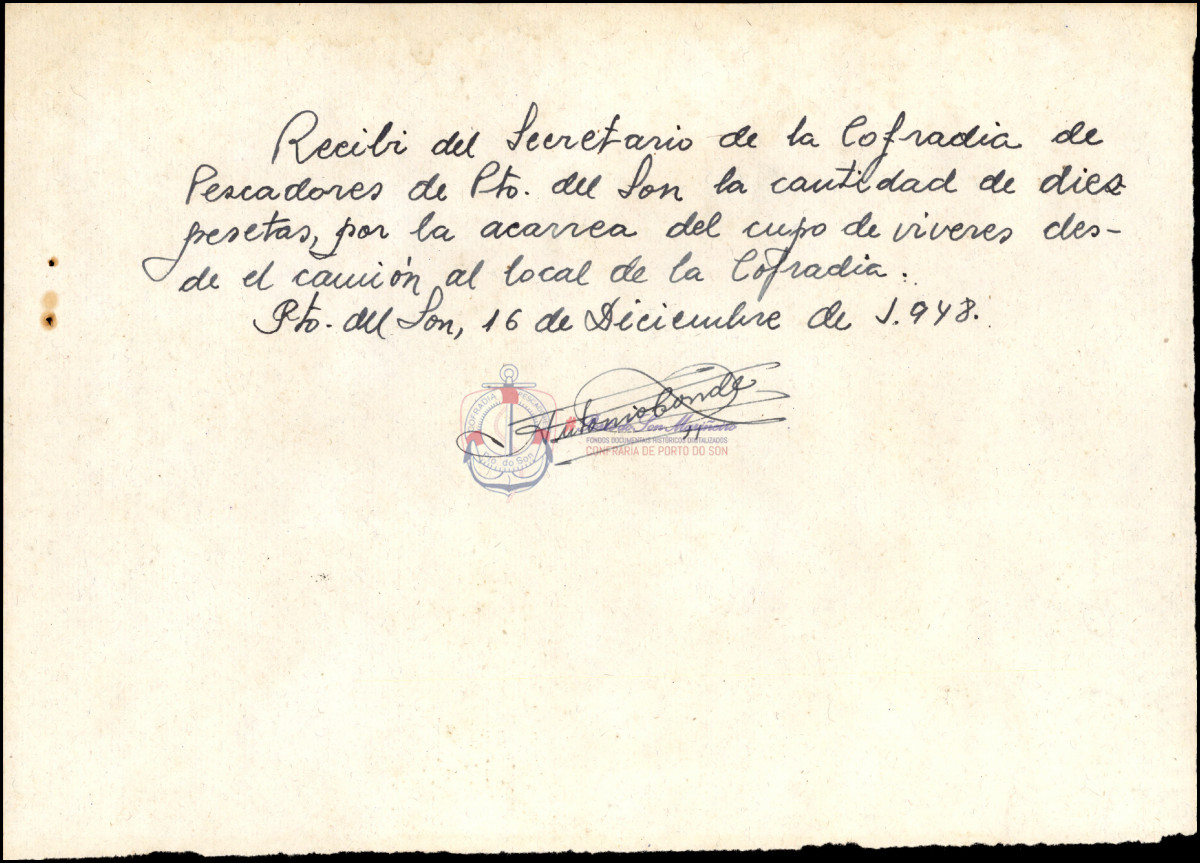 Recibi del Secretario de la Cofradia de
Pescadores de Pto. del Son la cantidad de diez
pesetas, por la acarrea del cupo de viveres des-
de el camión al local de la Cofradia.
Pto. del Son, 16 de Diciembre de 1.948.
Antonio Conde
COFRADIA PESCADORES
Pto. do Son
FONDOS DOCUMENTAIS HISTÓRICOS DIXITALIZADOS
CONFRARÍA DE PORTO DO SON